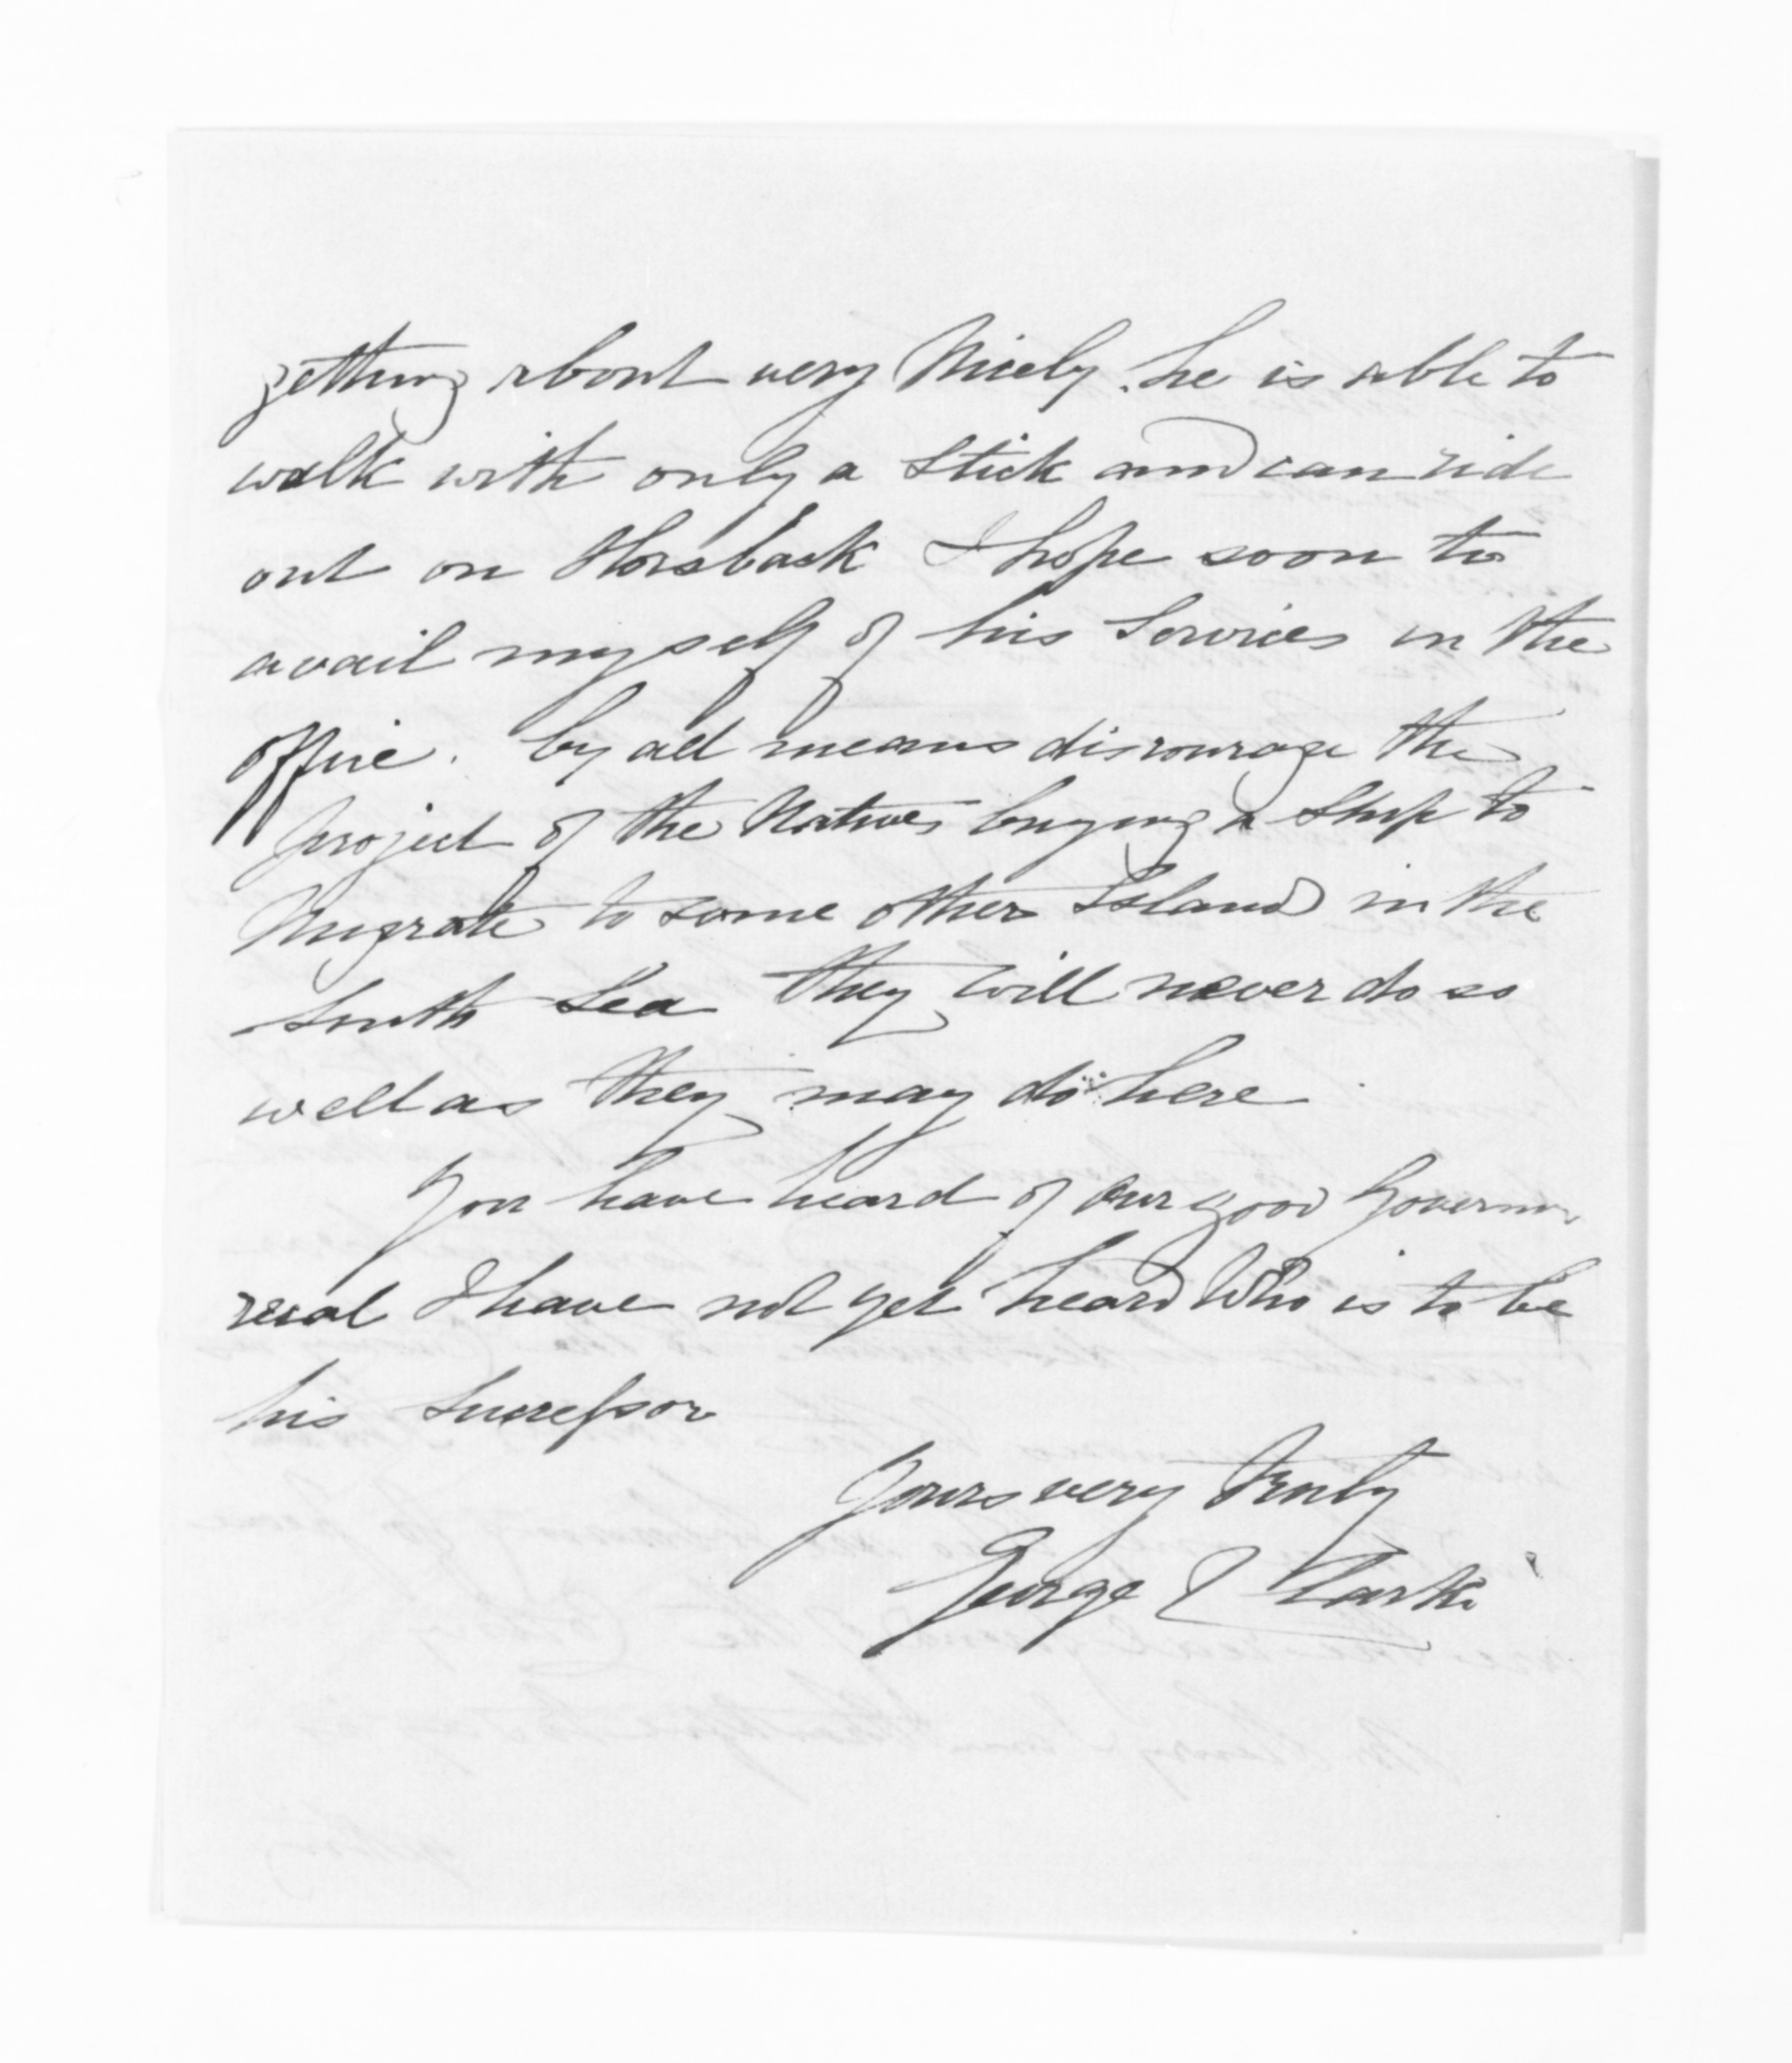 getting about very Nicely. he is able to
walk with only a Stick and can ride
out on Horsback I hope soon to
avail myself of his Services in the
office. by all means discourage the
project of the Natives buying a Ship to
Migrate to some other Island in the
South Sea they will never do so
well as they may do here
You have heard of our good Governor
recal I have not yet heard Who is to be
his Successor
Yours very truly
George Clarke